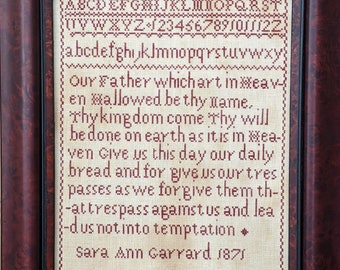 ABCDEFGHIJKLMNOPQRST
UVWXYZ·12345678910
abcdefghijklmnopqrstuvwxy
Our Father which art in Hea-
ven Hallowed be thy Name,
Thy kingdom come Thy will
be done on earth as it is in Hea-
ven Give us this day our daily
bread and for give us our tres
passes as we for give them th-
-at trespass against us and lea-
d us not into temptation
Sara Ann Garrard 1871